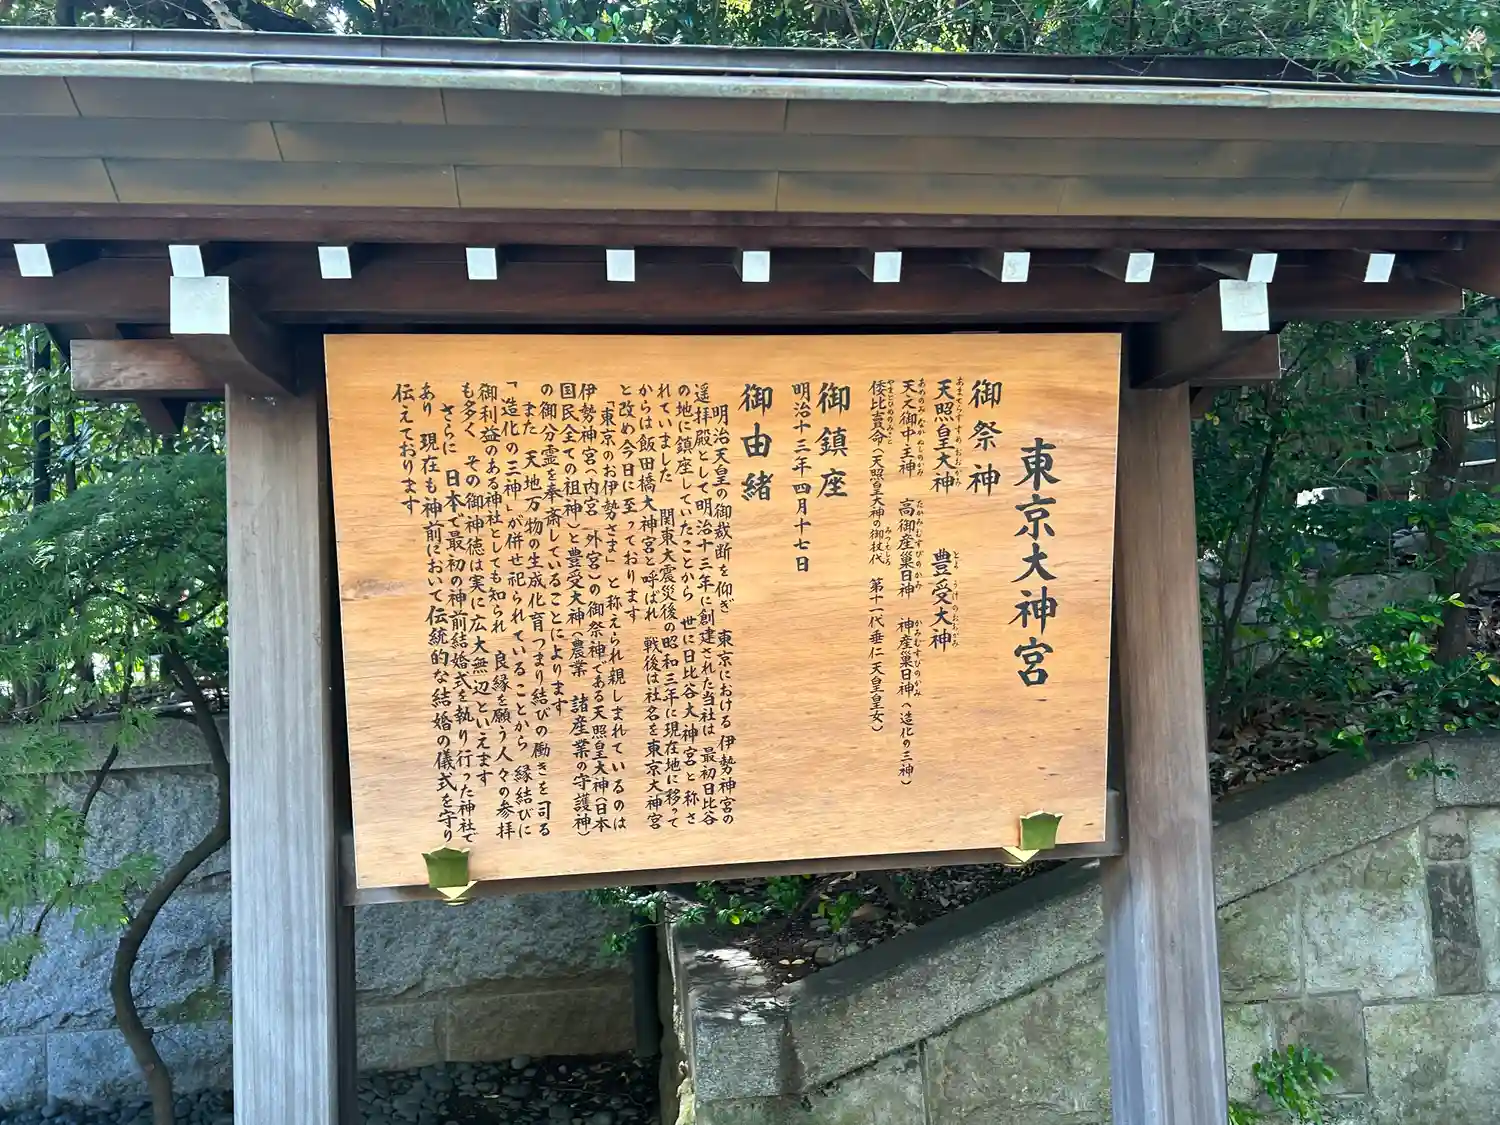 東京大神宮
御祭神
天照皇大神 豊受大神
あまてらすすめおおかみ とようけのおおかみ
天之御中主神 高御産巣日神 神産巣日神（造化の三神）
あめのみなかぬしのかみ たかみむすびのかみ かみむすびのかみ
倭比賣命（天照皇大神の御杖代 第十一代垂仁天皇皇女）
やまとひめのみこと みつえしろ
御鎮座
明治十三年四月十七日
御由緒
明治天皇の御裁断を仰ぎ 東京における伊勢神宮の
遥拝殿として明治十三年に創建された当社は 最初日比谷
の地に鎮座していたことから 世に日比谷大神宮と称さ
れていました 関東大震災後の昭和三年に現在地に移って
からは飯田橋大神宮と呼ばれ 戦後は社名を東京大神宮
と改め今日に至っております
「東京のお伊勢さま」と称えられ親しまれているのは
伊勢神宮（内宮 外宮）の御祭神である天照皇大神（日本
国民全ての祖神）と豊受大神（農業 諸産業の守護神）
の御分霊を奉斎していることによります
また 天地万物の生成化育つまり結びの働きを司る
「造化の三神」が併せ祀られていることから 縁結びに
御利益のある神社としても知られ 良縁を願う人々の参拝
も多く その御神徳は実に広大無辺といえます
さらに 日本で最初の神前結婚式を執り行った神社で
あり 現在も神前において伝統的な結婚の儀式を守り
伝えております